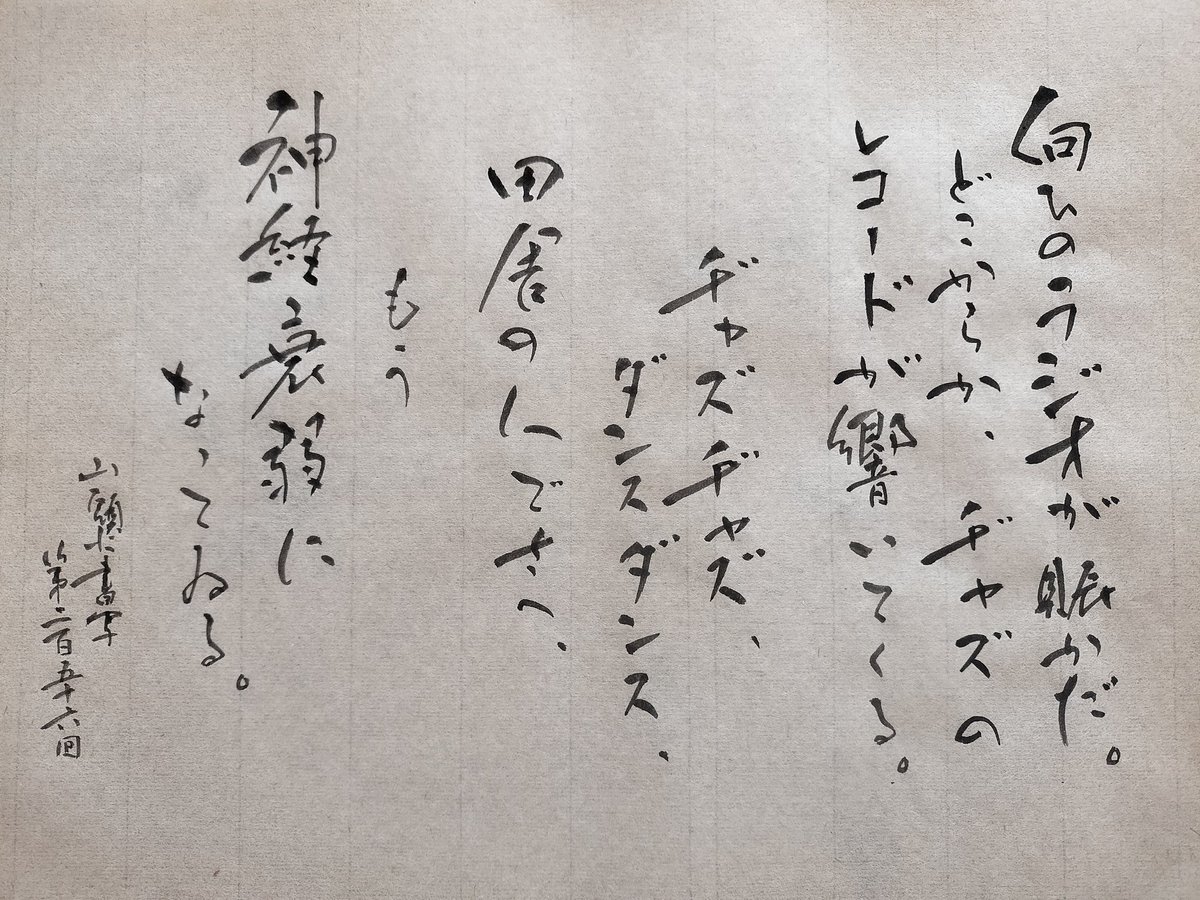 向ひのラジオが賑かだ。
どこからか、ヂャズの
レコードが響いてくる。
ヂャズヂャズ、
ダンスダンス、
田舎の人でさへ、
もう
神経衰弱に
なってゐる。
山頭火書写
第二百五十六回